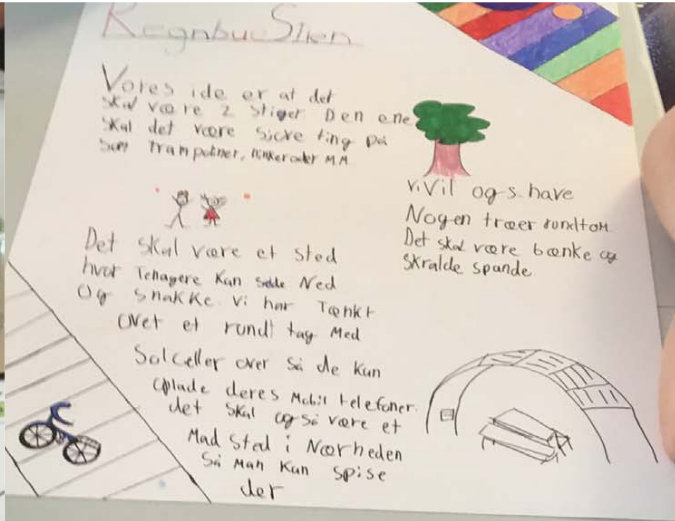 Regnbue Stien
Vores ide er at det
skal være 2 stiger Den ene
skal det være sjove ting på
som Trampoliner, MM
Vi Vil ogs have
Nogen træer rundtom
Det skal være bænke og
skralde spande
Det skal være et sted
hvor Tenagere Kan sidde Ned
Og snakke. Vi har Tænkt
over et rundt tag Med
Solceller over så de kan
oplade deres Mobil telefoner.
det skal også være et
Mad sted i Nærheden
så Man Kan spise
der